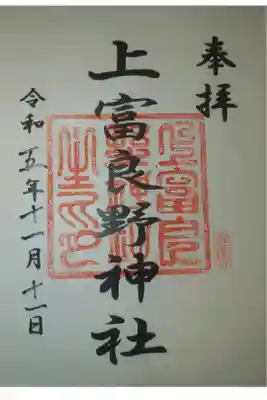 奉拝
上富良野神社
令和五年十一月十一日